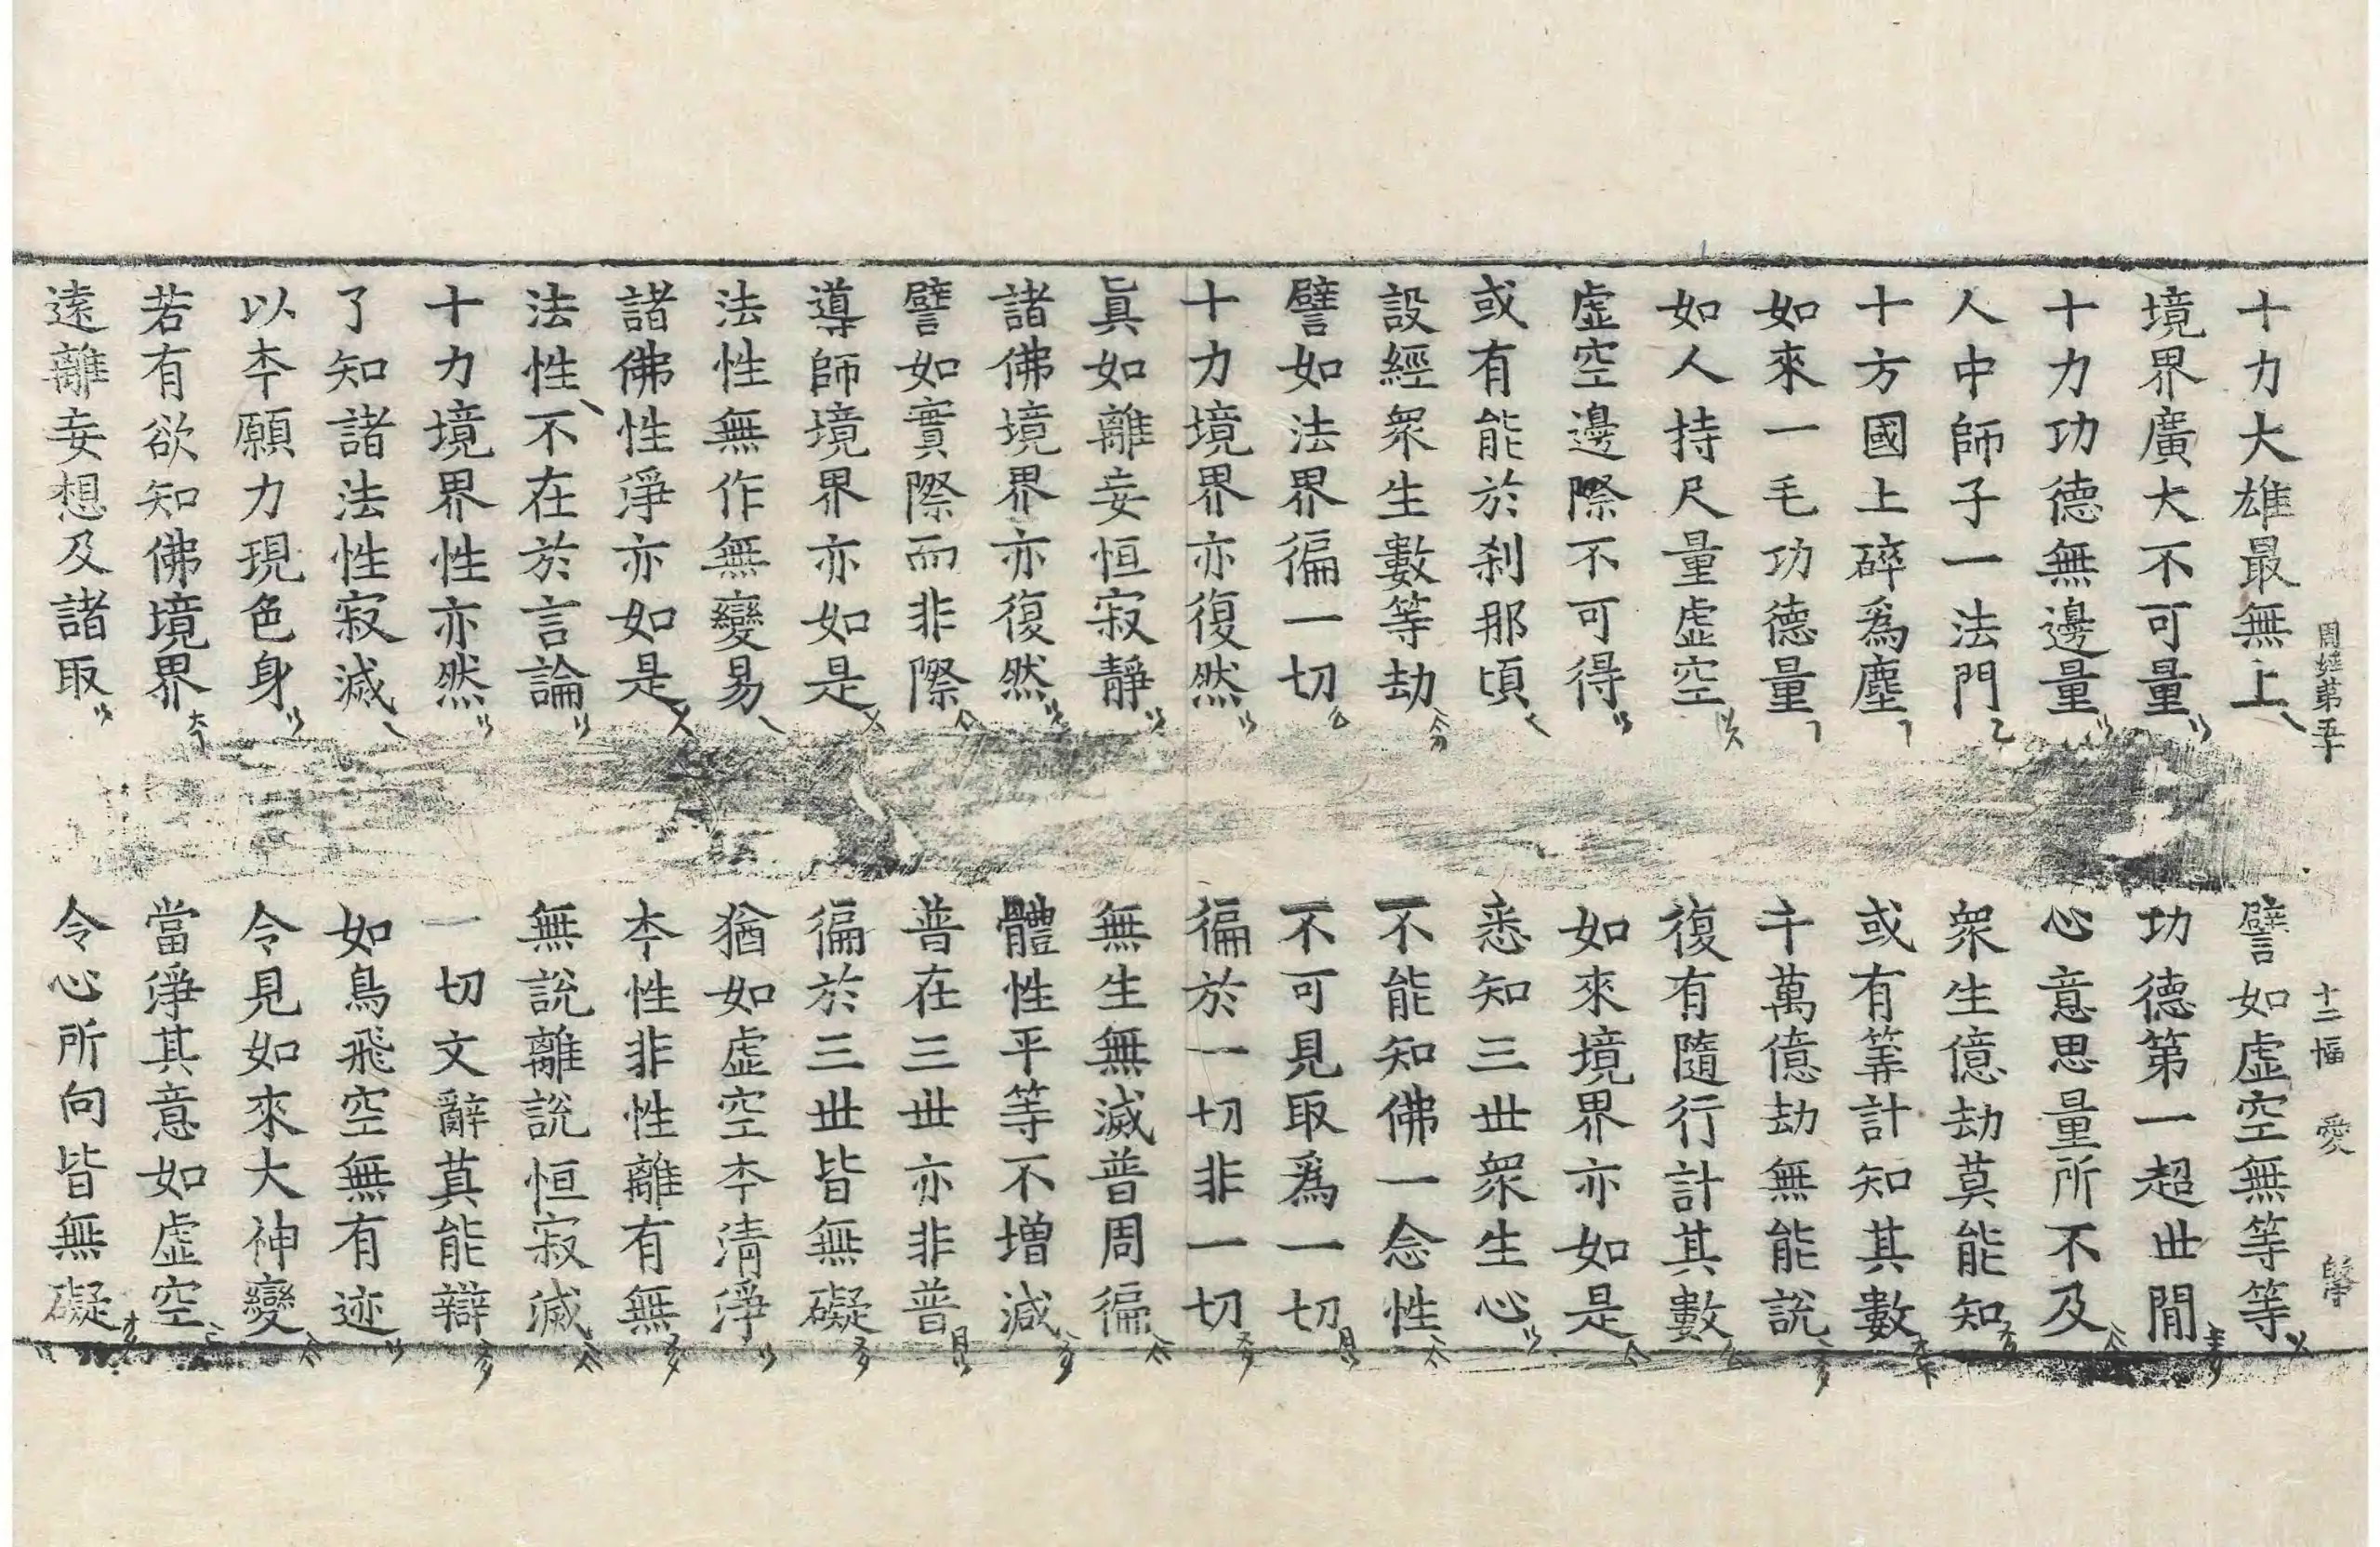 周經第五十 十二幅 愛
十力大雄最無上 譬如虛空無等等
境界廣大不可量 功德第一超世間
十力功德無邊量 心意思量所不及
人中師子一法門 衆生億劫莫能知
十方國土碎爲塵 或有筭計知其數
如來一毛功德量 千萬億劫無能說
如人持尺量虛空 復有隨行計其數
虛空邊際不可得 如來境界亦如是
或有能於刹那頃 悉知三世衆生心
設經衆生數等劫 不能知佛一念性
譬如法界徧一切 不可見取爲一切
十力境界亦復然 徧於一切非一切
眞如離妄恒寂靜 無生無滅普周徧
諸佛境界亦復然 體性平等不增減
譬如實際而非際 普在三世亦非普
導師境界亦如是 徧於三世皆無礙
法性無作無變易 猶如虛空夲清淨
諸佛性淨亦如是 夲性非性離有無
法性不在於言論 無說離說恒寂滅
十力境界性亦然 一切文辭莫能辯
了知諸法性寂滅 如鳥飛空無有迹
以夲願力現色身 令見如來大神變
若有欲知佛境界 當淨其意如虛空
遠離妄想及諸取 令心所向皆無礙